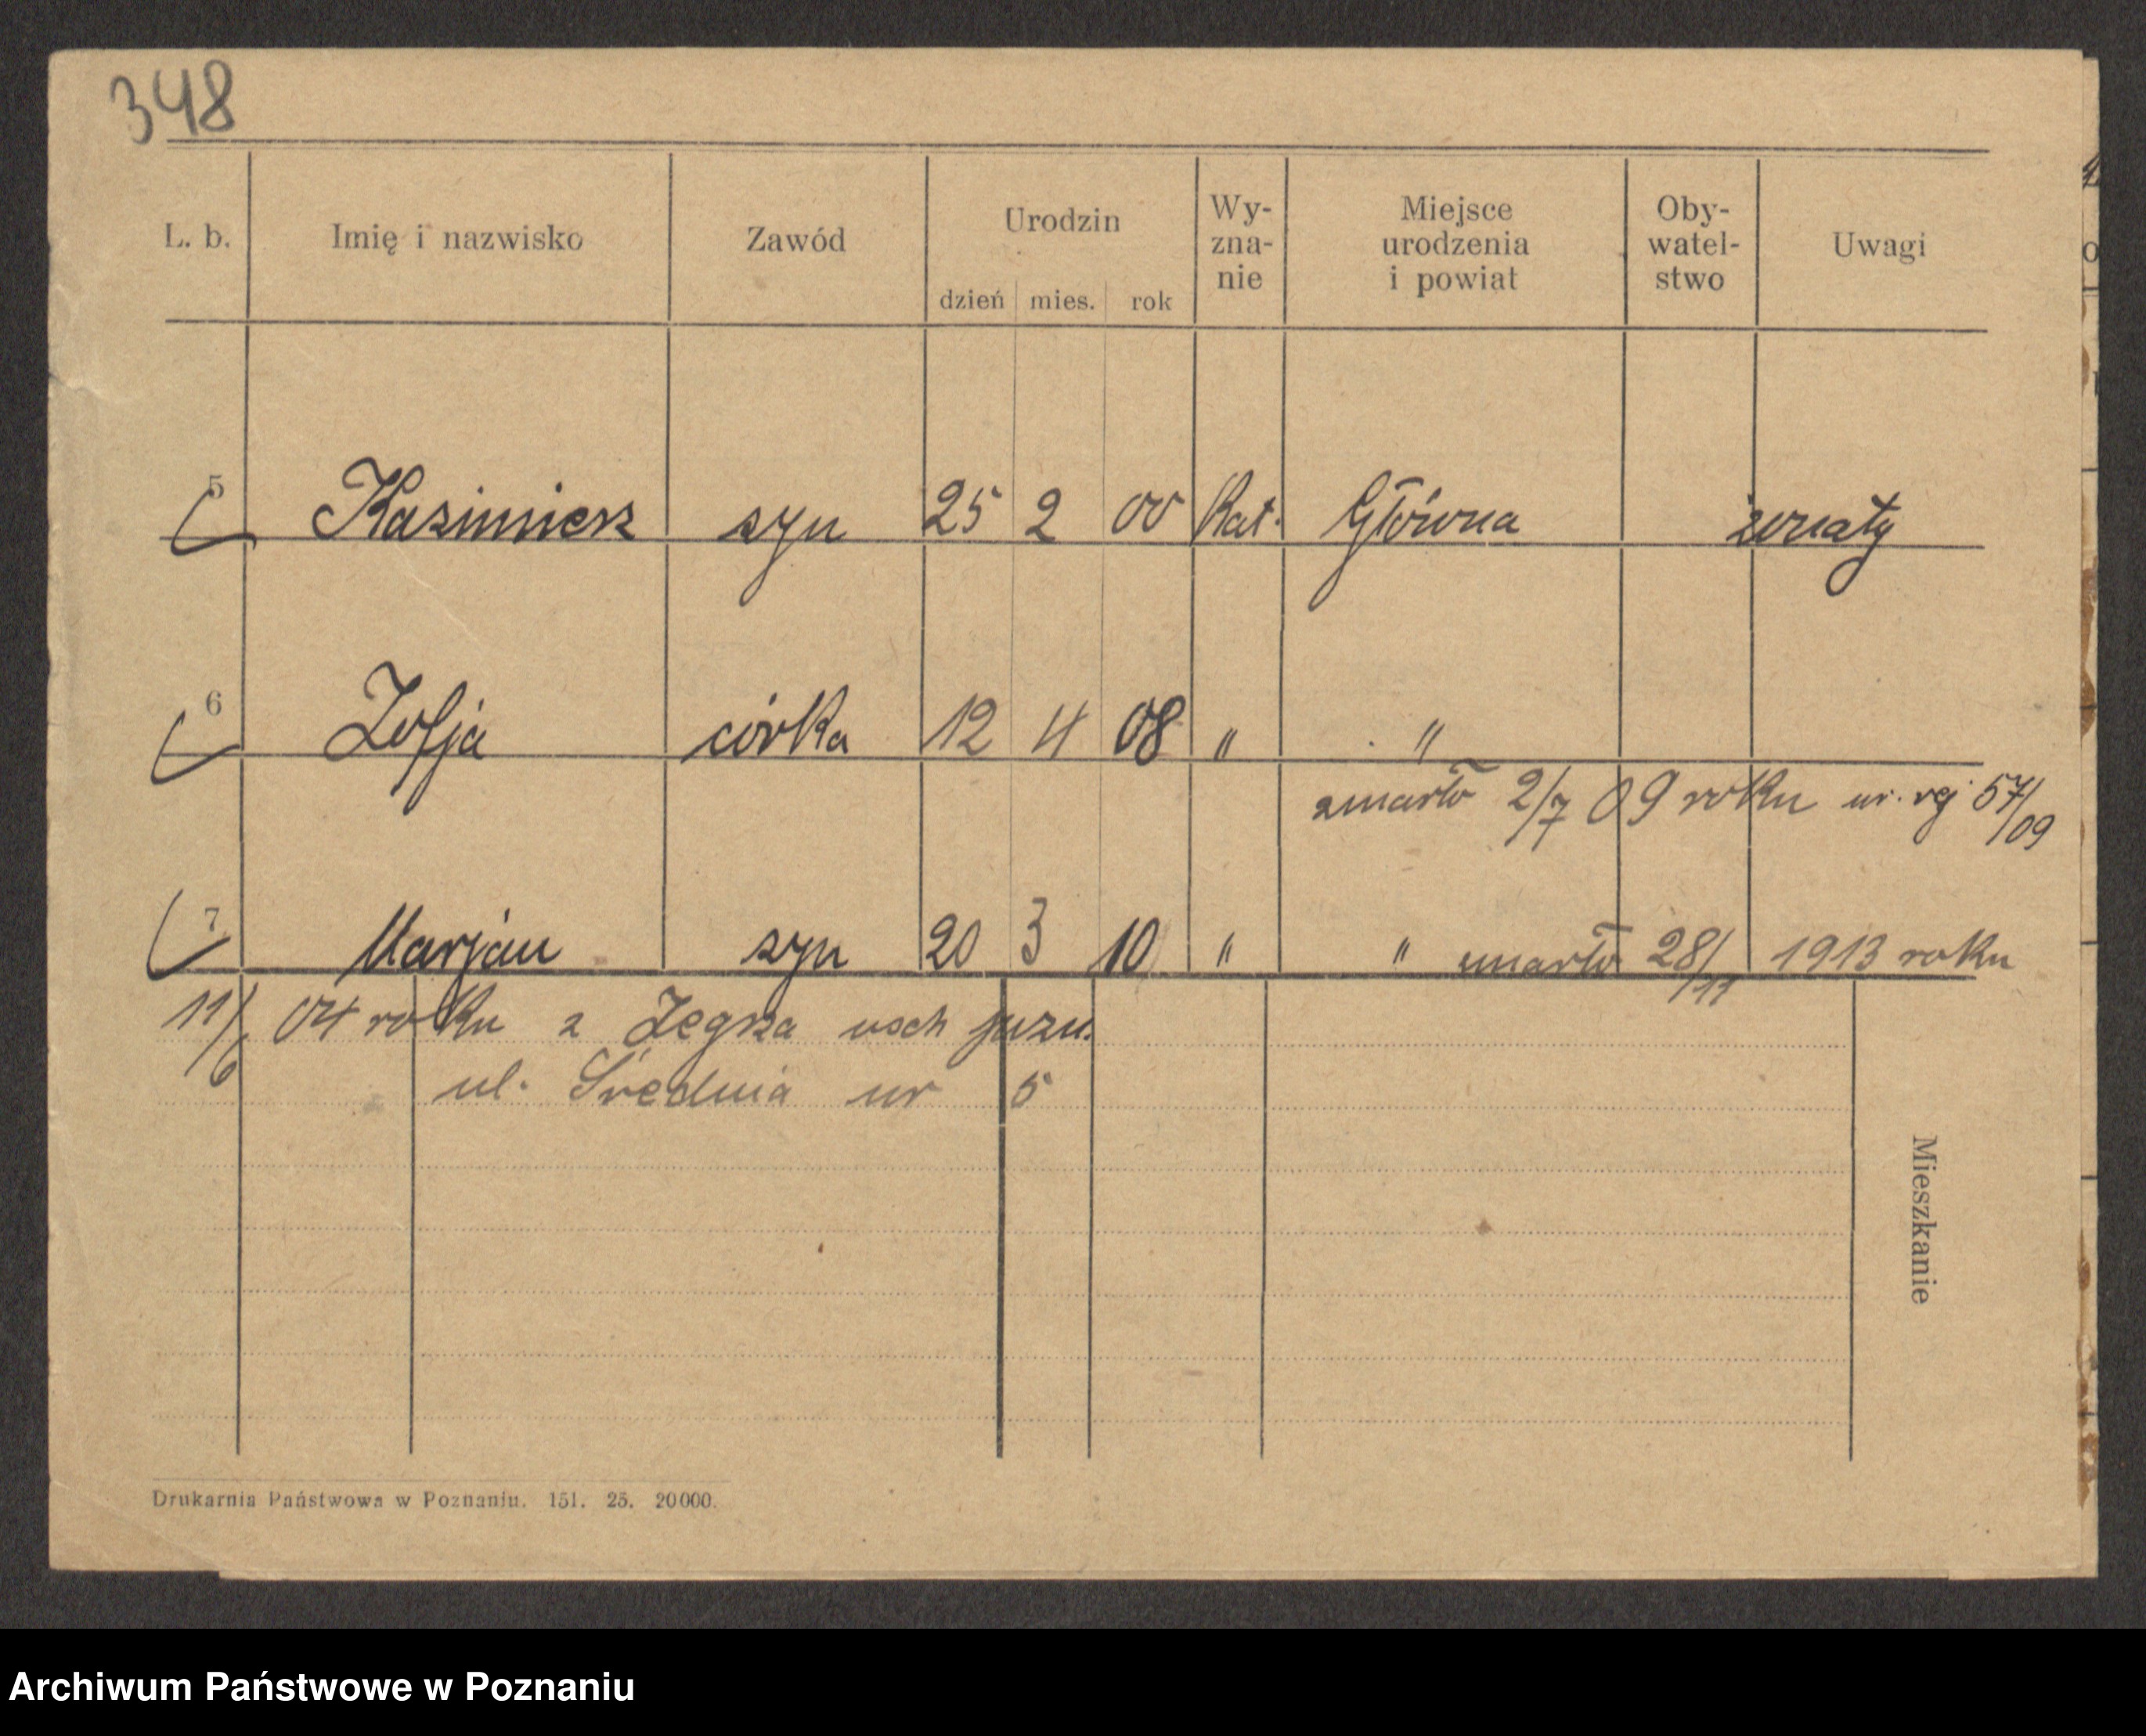 348
L. b. Imię i nazwisko Zawód Urodzin dzień mies. rok Wy-zna-nie Miejsce urodzenia i powiat Oby-watel-stwo Uwagi
5 Kazimierz syn 25 2 00 Kat. Główna żonaty
6 Zofja córka 12 4 08 " "
zmarła 2/7 09 roku nr. rej 57/09
7 Marjan syn 20 3 10 " " umarł 28/11 1913 roku
11/6 04 roku z Zegrza
ul. Średnia nr 5
Mieszkanie
Drukarnia Państwowa w Poznaniu. 151. 25. 20000.
Archiwum Państwowe w Poznaniu